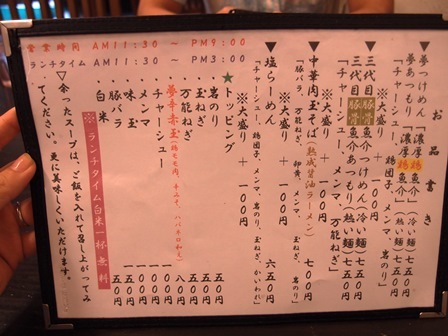 お品書き
▼夢つけめん「濃厚鶏魚介」(冷い麺)七五〇円
夢あつもり「濃厚鶏魚介」(熱い麺)七五〇円
「チャーシュー、鶏団子、メンマ、岩のり」
※大盛り + 一〇〇円
▼三代目豚骨魚介つけめん(冷い麺)七五〇円
三代目豚骨魚介あつもり(熱い麺)七五〇円
「チャーシュー、メンマ、万能ねぎ」
※大盛り + 一〇〇円
▼中華肉玉そば(熟成醤油ラーメン)七〇〇円
「豚バラ、万能ねぎ、卵黄、メンマ、玉ねぎ」
※大盛り + 一〇〇円
▼塩らーめん 六五〇円
「チャーシュー、鶏団子、メンマ、岩のり、玉ねぎ、かいわれ」
※大盛り + 一〇〇円
★トッピング
・岩のり 五〇円
・玉ねぎ 五〇円
・万能ねぎ 五〇円
・夢辛赤玉(鶏モモ肉、辛みそ、ハバネロ和え) 八〇円
・チャーシュー
・メンマ 一〇〇円
・味玉 一〇〇円
・豚バラ
・白米 五〇円
※ランチタイム白米一杯無料
▽余ったスープは、ご飯を入れて召し上がってみてください。更に美味しくいただけます。
営業時間 AM11:30 ～ PM9:00
ランチタイム AM11:30 ～ PM3:00